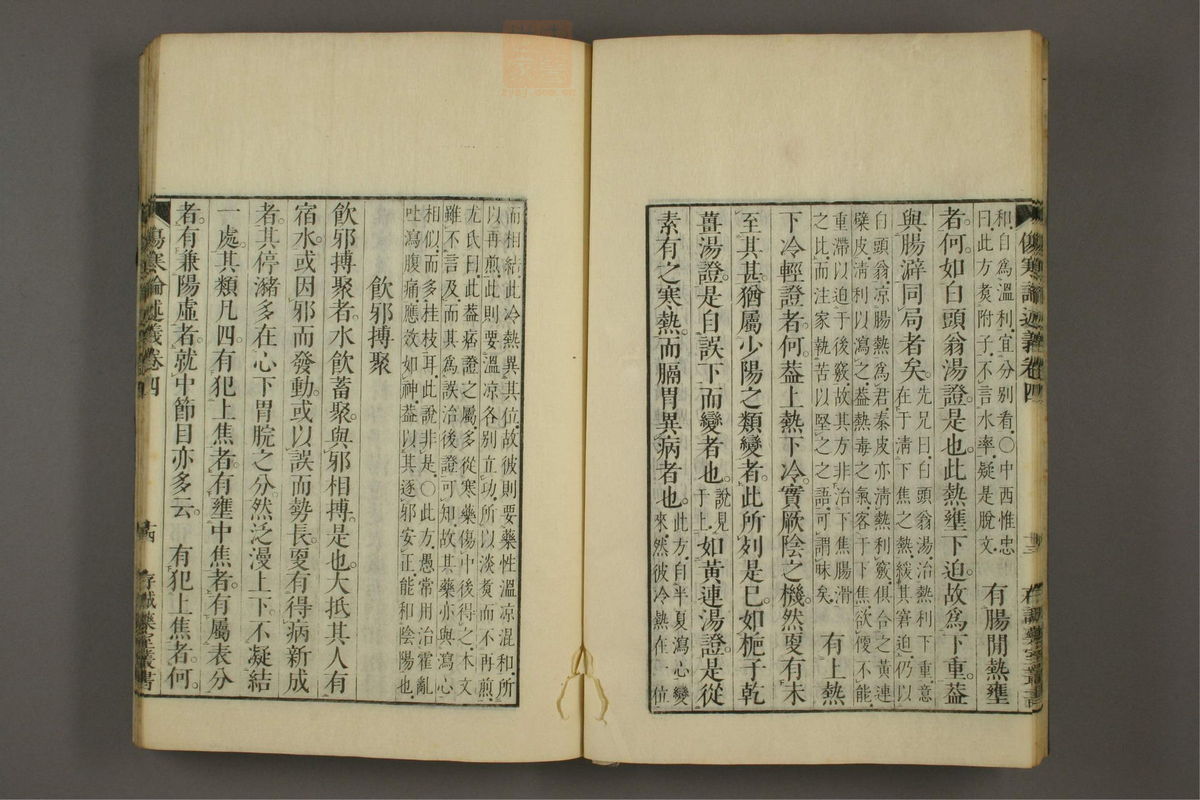 傷寒論述義卷四
和白爲溫利．宜分別看．〇中西惟忠
曰．此方煑附子．不言水率．疑是脫文．
有腸閒熱壅
者。何。如白頭翁湯證。是也。此熱壅下迫。故爲下重。葢
與腸澼同局者矣。
先兄曰．白頭翁湯治熱利下重．意
在于淸下焦之熱．緩其窘迫．仍以
白頭翁凉腸熱爲君．秦皮亦淸熱利竅．俱合之黃連
檗皮淸利以瀉之．葢熱毒之氣．客于下焦．欲便不能．
重滯以迫于後竅．故其方非治下焦腸滑
之比．而注家執苦以堅之之語．可謂昧矣．
有上熱
下冷輕證者。何。葢上熱下冷。實厥陰之機。然更有未
至其甚。猶屬少陽之類變者。此所列是已。如梔子乾
薑湯證。是自誤下而變者也。
說見
于上．
如黃連湯證。是從
素有之寒熱。而膈胃異病者也。
此方．自半夏瀉心變
來．然彼冷熱在一位
而相結．此冷熱異其位．故彼則要藥性溫凉混和．所
以再煎．此則要溫凉各別立功．所以淡煑而不再煎．
尤氏曰．此葢痞證之屬．多從寒藥傷中後得之．本文
雖不言及．而其爲誤治後證可知．故其藥亦與瀉心
相似．而多桂枝耳．此說非是．〇此方．愚常用治霍亂
吐瀉腹痛．應效如神．葢以其逐邪安正．能和陰陽也．
飮邪搏聚
飮邪搏聚者。水飮蓄聚。與邪相搏。是也。大抵其人有
宿水。或因邪而發動。或以誤而勢長。更有得病新成
者。其停瀦多在心下胃脘之分。然泛漫上下。不凝結
一處。其類凡四。有犯上焦者。有壅中焦者。有屬表分
者。有兼陽虛者。就中節目亦多云。　有犯上焦者。何。
傷寒論述義卷四
存誠藥室叢書